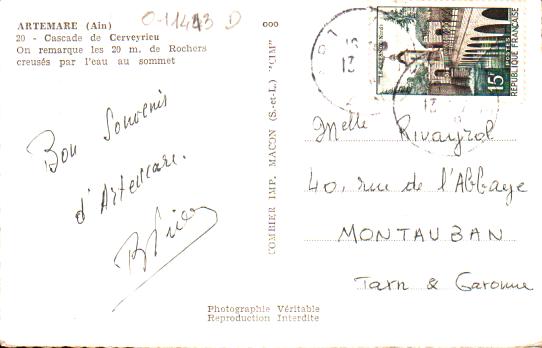 ARTEMARE (Ain)
20 - Cascade de Cerveyrieu
On remarque les 20 m. de Rochers
creusés par l'eau au sommet
O-11413 D
Bon Souvenir
d'Artemare.
COMBIER IMP. MACON (S.-et-L.) "CIM"
15F
REPUBLIQUE FRANÇAISE
Melle Rivayrol
40, rue de l'Abbaye
MONTAUBAN
Tarn & Garonne
Photographie Véritable
Reproduction Interdite